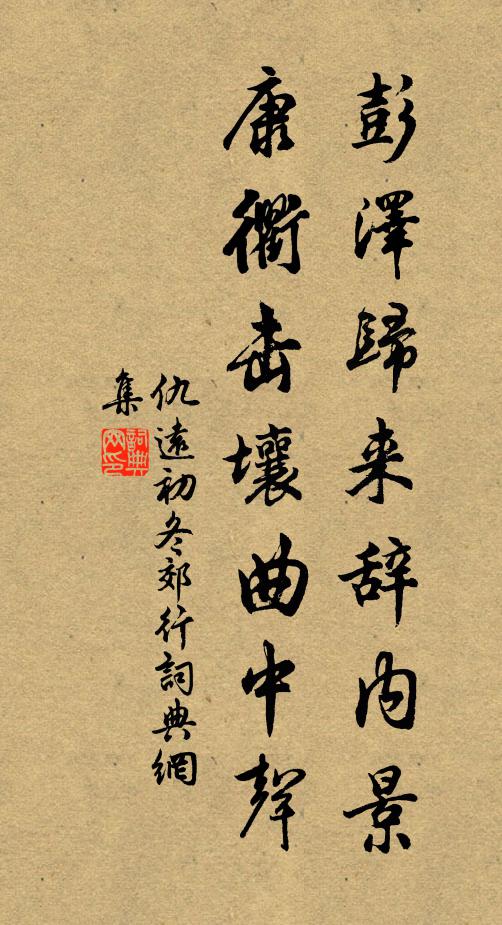 彭澤歸来辞内景
康衢击壤曲中聲
仇遠初冬郊行詞典網
集
詞典網印